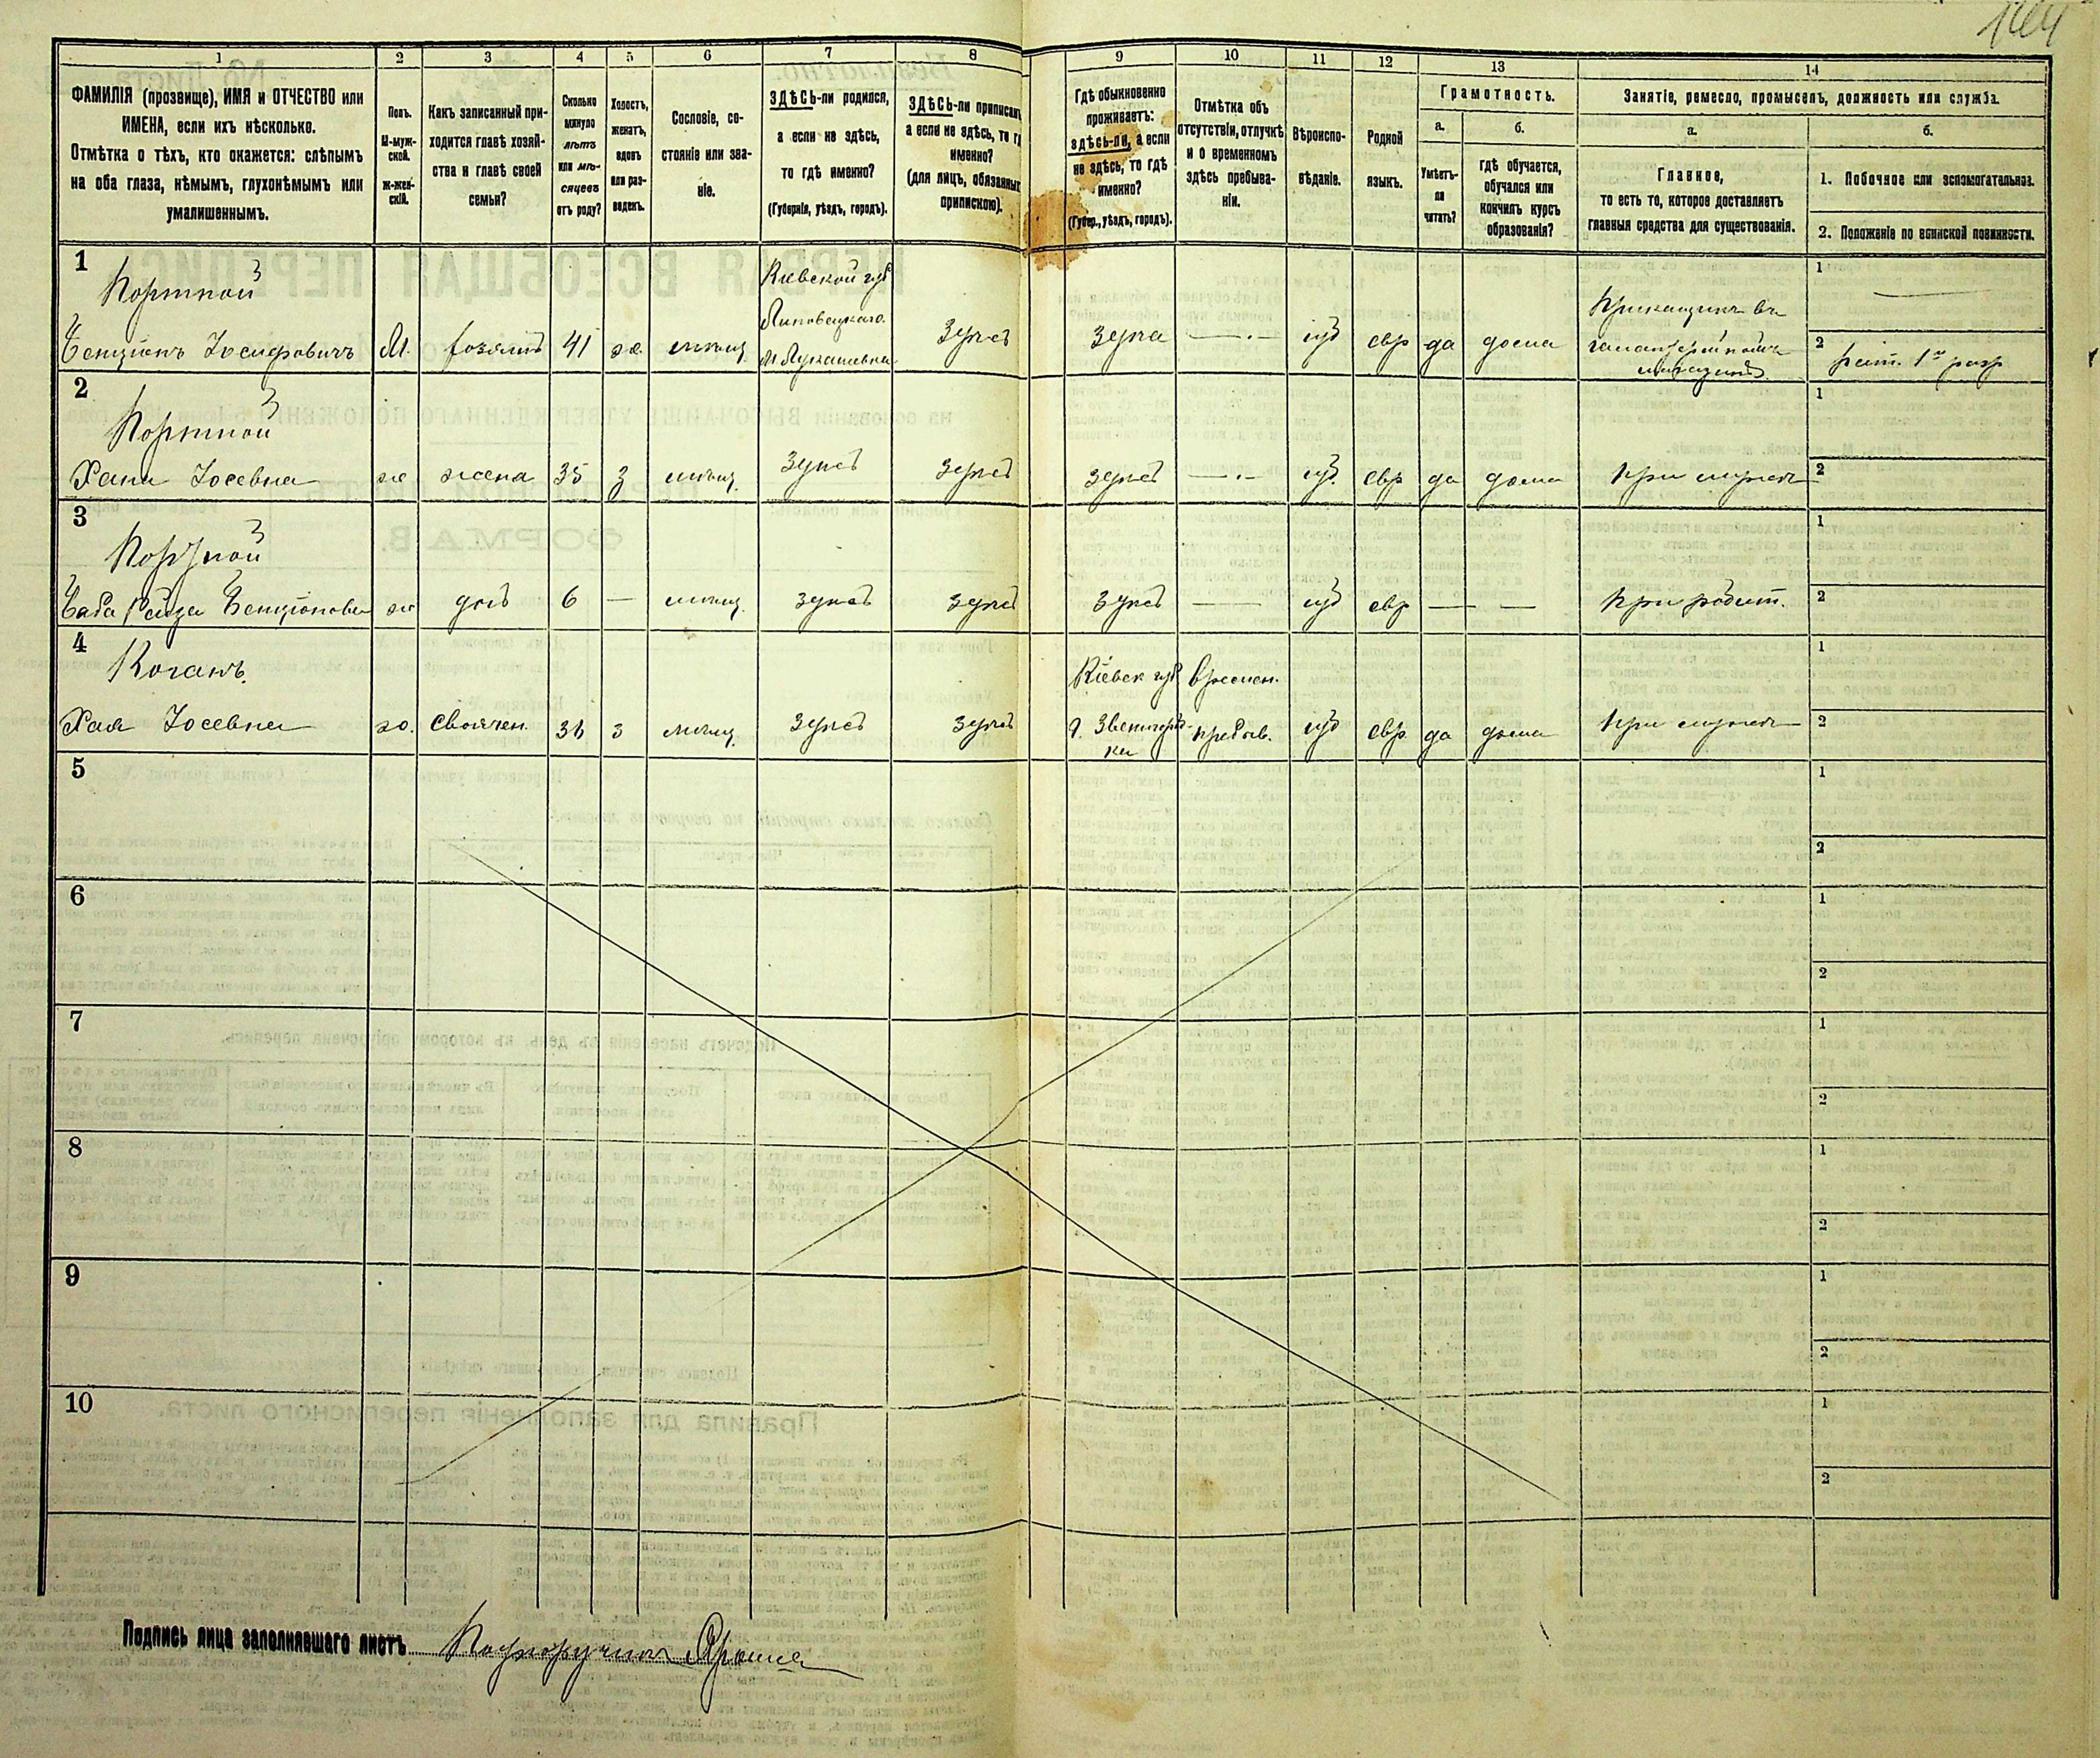 1 2 3 4 5 6 7 8 9 10 11 12 13 14
ФАМИЛІЯ (прозвище), ИМЯ и ОТЧЕСТВО или
ИМЕНА, если ихъ нѣсколько.
Отмѣтка о тѣхъ, кто окажется: слѣпымъ
на оба глаза, нѣмымъ, глухонѣмымъ или
умалишеннымъ.
Полъ.
М-муж-
ской.
ж-жен-
скій.
Какъ записанный при-
ходится главѣ хозяй-
ства и главѣ своей
семьи?
Сколько
минуло
лѣтъ
или мѣ-
сяцевъ
отъ роду?
Холостъ,
женатъ,
вдовъ
или раз-
веденъ.
Сословіе, со-
стояніе или зва-
ніе.
ЗДѢСЬ-ли родился,
а если не здѣсь,
то гдѣ именно?
(Губернія, уѣздъ, городъ).
ЗДѢСЬ-ли приписанъ
а если не здѣсь, то гдѣ
именно?
(для лицъ, обязанныхъ
припискою).
Гдѣ обыкновенно
проживаетъ:
здѣсь-ли, а если
не здѣсь, то гдѣ
именно?
(Губер., уѣздъ, городъ).
Отмѣтка объ
отсутствіи, отлучкѣ
и о временномъ
здѣсь пребыва-
ніи.
Вѣроиспо-
вѣданіе.
Родной
языкъ.
Грамотность.
а. б.
Умѣетъ-
ли
читать?
гдѣ обучается,
обучался или
кончилъ курсъ
образованія?
Занятіе, ремесло, промыселъ, должность или служба.
а. б.
Главное,
то есть то, которое доставляетъ
главныя средства для существованія.
1. Побочное или вспомогательное.
2. Положеніе по воинской повинности.
1
Портной
Бенціонъ Іосифовичъ М. хозяинъ 41 ж. мѣщ.
Кіевской губ
Липовецкаго
здѣсь здѣсь іуд евр да дома
Прикащикъ въ
галантерейномъ
магазинѣ
1
2 рат. 1го разр
2
Портной
Хана Іосевна ж жена 35 з мѣщ. здѣсь здѣсь здѣсь іуд. евр да дома При мужѣ
1
2
3
Портной
Баба Рейза Бенціоновна ж дочь 6 — мѣщ. здѣсь здѣсь здѣсь — іуд евр — — При родит.
1
2
4
Коганъ.
Хая Іосевна ж. своячен. з мѣщ. здѣсь здѣсь
Кіевск губ
г. Звенигород-
ка
Времен.
пребыв.
іуд евр да дома При мужѣ
1
2
5
1
2
6
1
2
7
1
2
8
1
2
9
1
2
10
1
2
Подпись лица заполнявшаго листъ Подпоручикъ